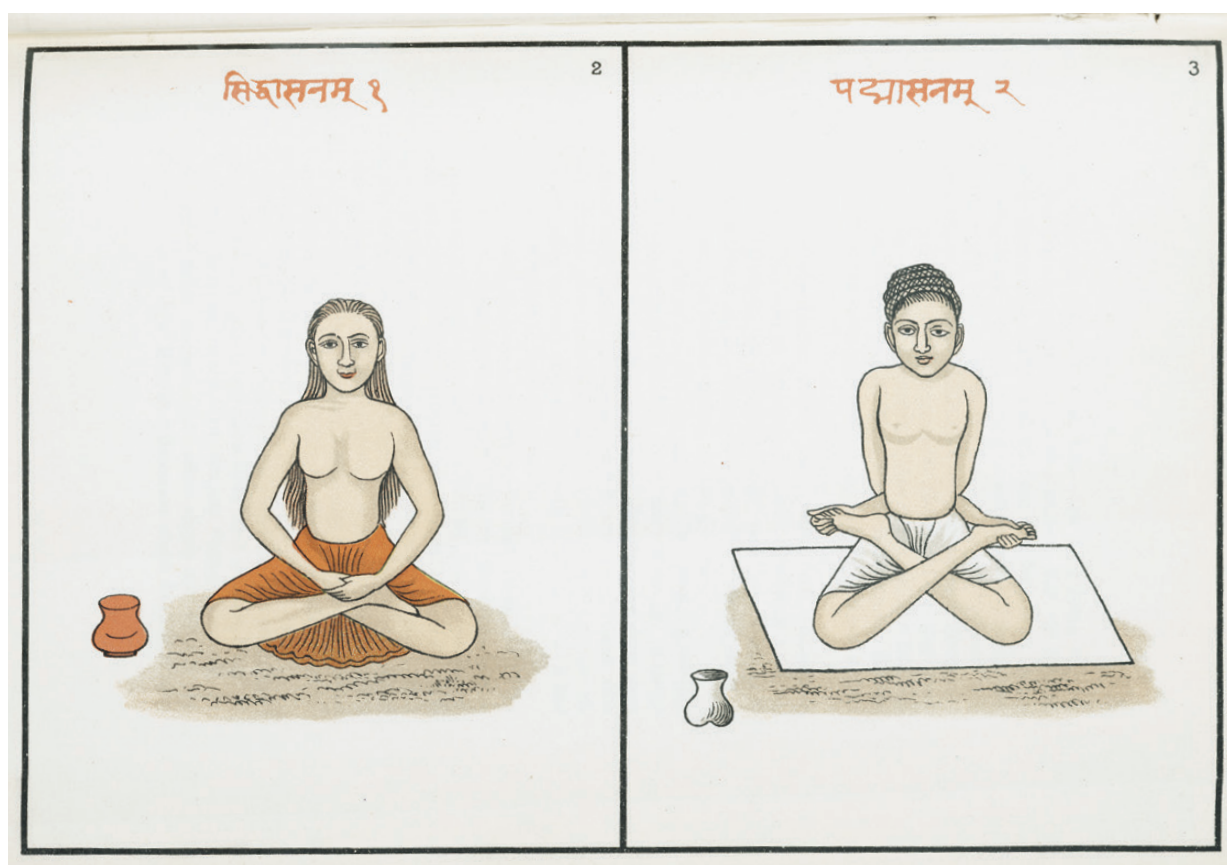 2
सिद्धासनम् १
3
पद्मासनम् २